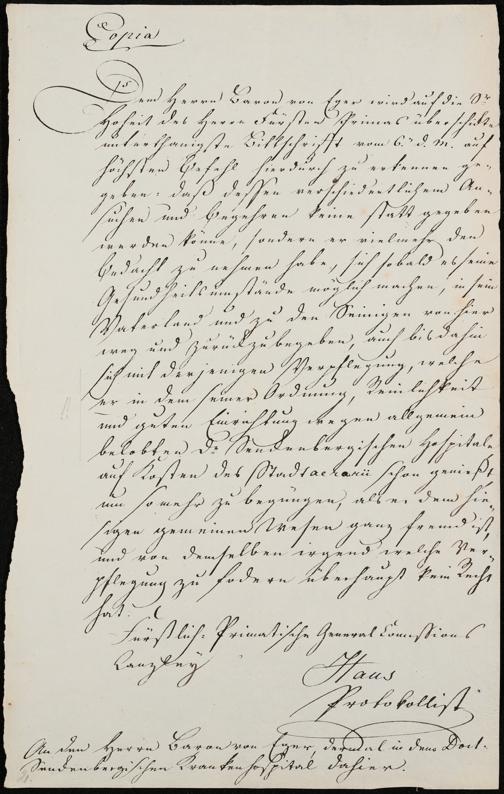 Copia
Dem Herrn Baron von Eger wird auf die Sr
Hoheit des Herrn Fürsten Primas überschickte
unterthänigste Bittschrift vom 6. d. M. auf
höchsten Befehl hierdurch zu erkennen ge-
geben: daß dessen verschiedentlichem An-
suchen und Begehren keine statt gegeben
werden könne, sondern er vielmehr den
Bedacht zu nehmen habe, sich sobald es seine
Gesundheitsumstände möglich machen, in sein
Vaterland und zu den Seinigen von hier
weg und zurückzubegeben, auch bis dahin
sich mit derjenigen Verpflegung, welche
er in dem seiner Ordnung, Reinlichkeit
und guten Einrichtung wegen allgemein
belobten Dr Senckenbergischen Hospitale
auf Kosten des Stadtaerarii schon genießt
um so mehr zu begnügen, als er dem hie-
sigen gemeinen Wesen ganz fremd ist,
und von demselben irgend welche Ver-
pflegung zu fodern überhaupt kein Recht
hat.
Fürstlich-Primatische General Comissions
Kanzley
Haus
Protokollist
An den Herrn Baron von Eger, dermal in dem Doct.
Senckenbergischen Krankenhospital dahier.